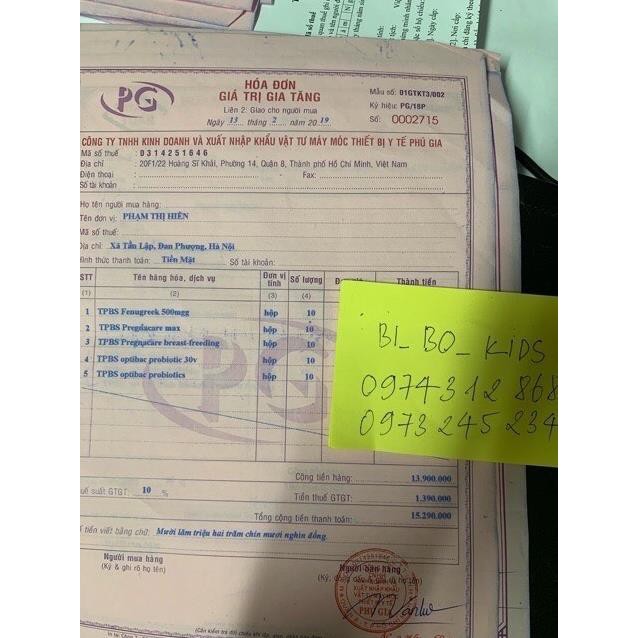 PG
HÓA ĐƠN
GIÁ TRỊ GIA TĂNG
Liên 2: Giao cho người mua
Ngày 13 tháng 2 năm 2019
Mẫu số: 01GTKT3/002
Ký hiệu: PG/18P
Số: 0002715
CÔNG TY TNHH KINH DOANH VÀ XUẤT NHẬP KHẨU VẬT TƯ MÁY MÓC THIẾT BỊ Y TẾ PHÚ GIA
Mã số thuế : 0314251646
Địa chỉ : 20F1/22 Hoàng Sĩ Khải, Phường 14, Quận 8, Thành phố Hồ Chí Minh, Việt Nam
Điện thoại : Fax:
Số tài khoản :
Họ tên người mua hàng:
Tên đơn vị: PHẠM THỊ HIÊN
Mã số thuế:
Địa chỉ: Xã Tân Lập, Đan Phượng, Hà Nội
Hình thức thanh toán: Tiền Mặt Số tài khoản:
STT Tên hàng hóa, dịch vụ Đơn vị tính Số lượng Thành tiền
(1) (2) (3) (4)
1 TPBS Fenugreek 500mgg hộp 10
2 TPBS Pregnacare max hộp 10
3 TPBS Pregnacare breast-freeding hộp 10
4 TPBS optibac probiotic 30v hộp 10
5 TPBS optibac probiotics hộp 10
BI_BO_KIDS
0974312868
0973245234
Cộng tiền hàng: 13.900.000
suất GTGT: 10 % Tiền thuế GTGT: 1.390.000
Tổng cộng tiền thanh toán: 15.290.000
tiền viết bằng chữ: Mười lăm triệu hai trăm chín mươi nghìn đồng.
Người mua hàng
(Ký & ghi rõ họ tên)
Người bán hàng
XUẤT NHẬP KHẨU
VẬT TƯ MÁY MÓC
THIẾT BỊ Y TẾ
PHÚ GIA